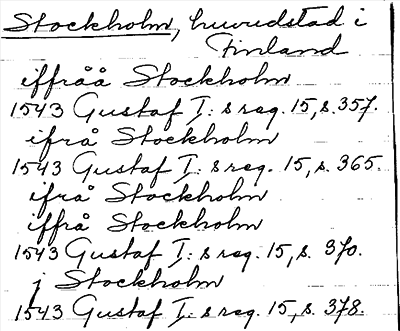 Stockholm, huvudstad i
Finland
iffråå Stockholm
1543 Gustaf I: s reg. 15, s. 357.
ifrå Stockholm
1543 Gustaf I: s reg. 15, s. 365.
ifrå Stockholm
iffrå Stockholm
1543 Gustaf I: s reg. 15, s. 370.
j Stockholm
1543 Gustaf I: s reg. 15, s. 378.